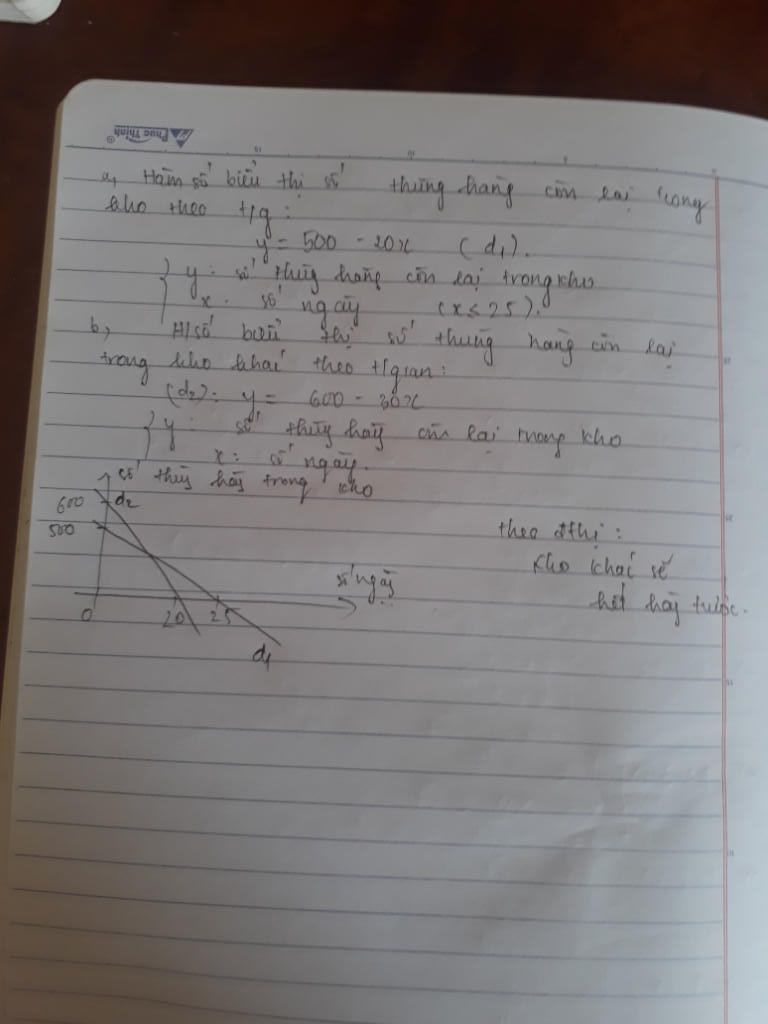 Phúc Thịnh
a, Hàm số biểu thị số thùng hàng còn lại trong
kho theo t/g:
y = 500 - 20x (d₁).
y: số thùng hàng còn lại trong kho
x: số ngày (x ≤ 25).
b, H/số biểu thị số thùng hàng còn lại
trong kho khai theo t/gian:
(d₂): y = 600 - 30x
y: số thùng hàng còn lại trong kho
x: số ngày.
số thùng hàng trong kho
600 d₂
500
số ngày
0 20 25
d₁
theo đthị:
kho khai sẽ
hết hàng trước.